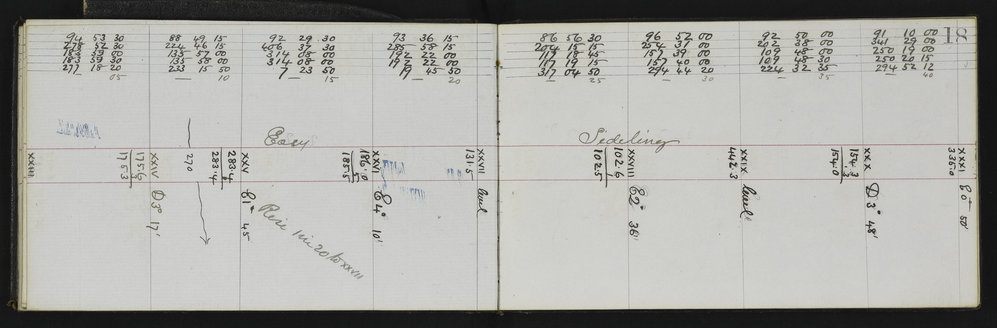 94 53 30 88 49 15 92 29 30 93 36 15
278 52 30 224 46 15 406 37 30 285 58 15
183 59 00 135 57 00 314 08 00 192 22 00
183 59 30 135 58 00 314 08 00 192 22 00
277 18 20 233 15 50 7 23 50 19 45 50
05 10 15 20
86 56 30 96 52 00 92 50 00 91 10 00
204 15 15 254 37 00 202 38 00 341 29 00
117 18 45 157 39 00 109 48 00 250 19 00
117 19 15 157 40 00 109 48 30 250 20 15
317 04 50 294 44 20 224 32 35 294 52 12
25 30 35 40
18
Easy
Sideling
XXIII
175.6
175.3
XXV
D 3° 17'
270
283.4
283.4
XXV
E 1° 45
Rise 1 in 20 to XXVII
186.0
5
185.5
XXVI
E 4° 10'
131.5
XXVII
level
102.6
1
102.5
XXVIII
E 2° 36'
442.3
XXIX
level
154.3
3
154.0
XXX
D 3° 48'
336.0
XXXI
E 0° 50'